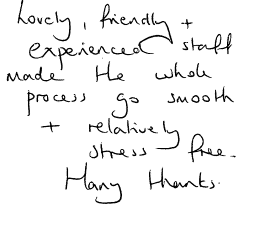 Lovely, friendly +
experienced staff
made the whole
process go smooth
+ relatively
stress free.
Many thanks.